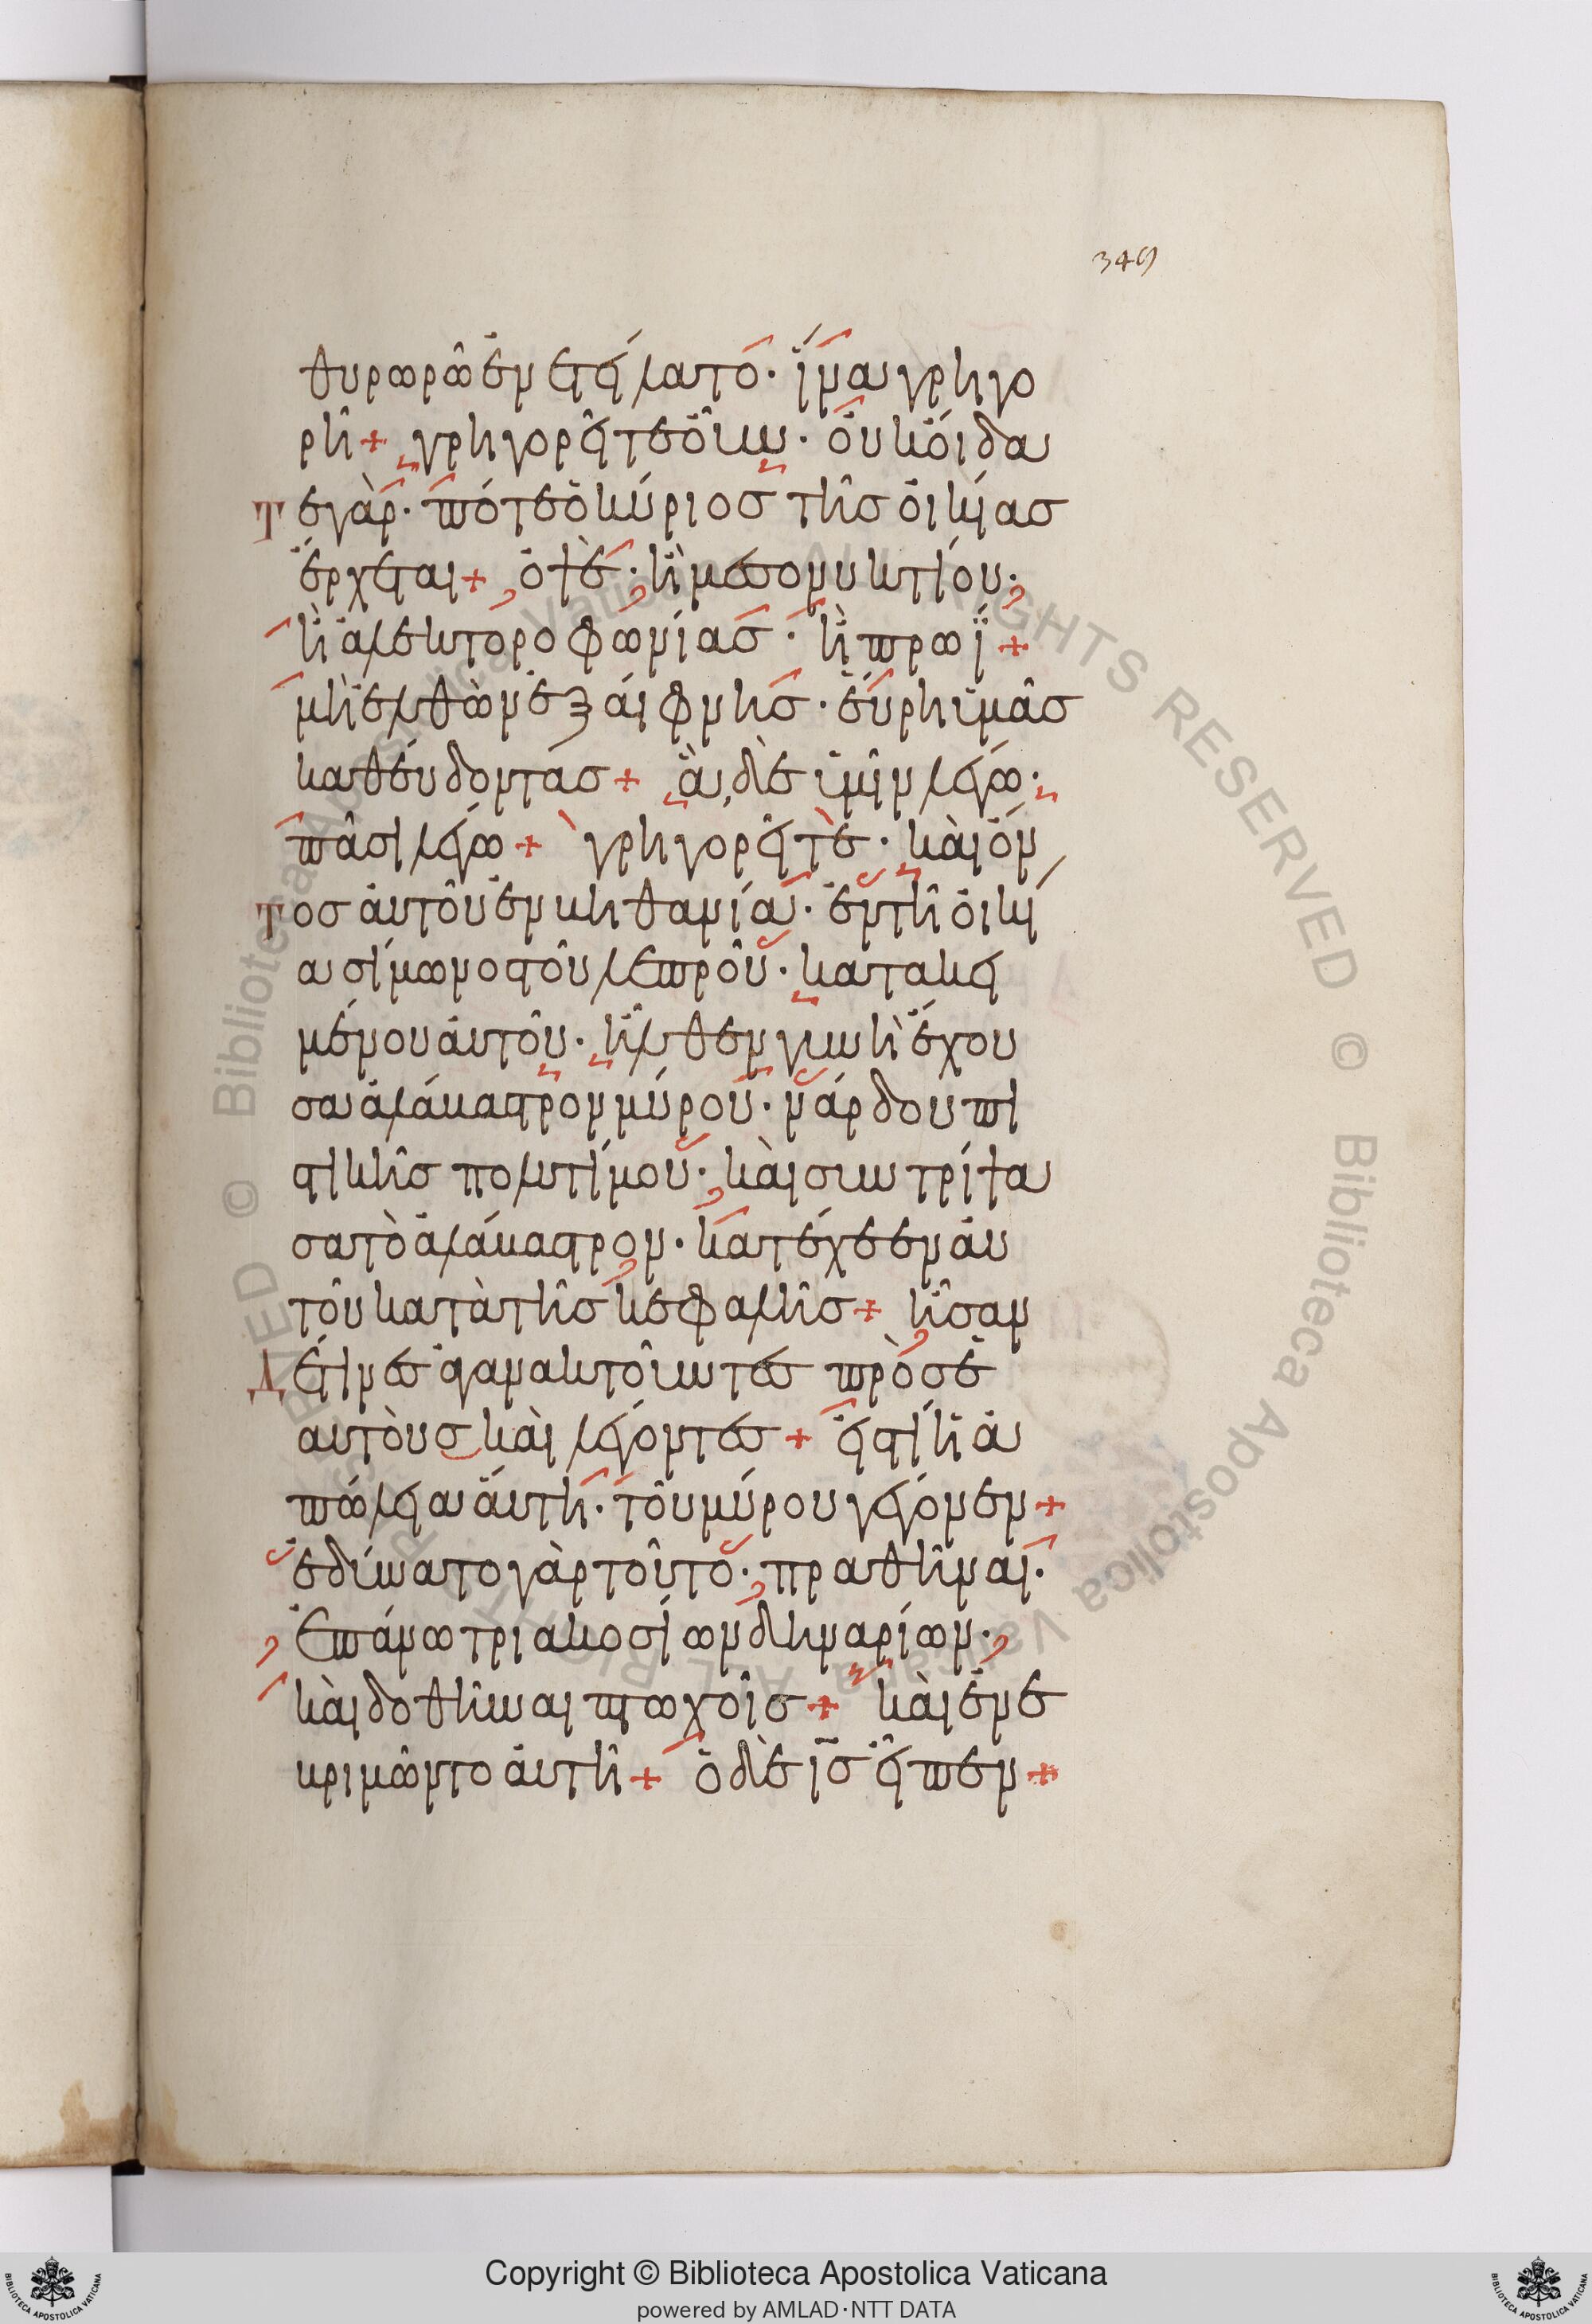 349
θυρωρῶ ἐνετείλατο· ἵνα γρηγο
ρῆ + γρηγορεῖτε οὖν· οὐκ οἴδα
τε γὰρ· πότε ὁ κύριος τῆς οἰκίας
ἔρχεται + ὀψὲ· ἢ μεσονυκτίου·
ἢ ἀλεκτοροφωνίας· ἢ πρωΐ +
μὴ ἐλθὼν ἐξάιφνης· ἕυρη ὑμᾶς
καθεύδοντας + ἃ δὲ ὑμῖν λέγω·
πᾶσι λέγω + γρηγορεῖτε· καὶ ὄν
τος ἀυτοῦ ἐν βηθανία· ἐν τῆ οἰκί
α σίμωνος τοῦ λεπροῦ· κατακει
μένου ἀυτοῦ· ἦλθεν γυνὴ ἔχου
σα ἀλάβαστρον μύρου· νάρδου πι
στικῆς πολυτίμου· καὶ συντρίψα
σα τὸ ἀλάβαστρον· κατέχεεν ἀυ
τοῦ κατὰ τῆς κεφαλῆς + ἦσαν
δέ τινες ἀγανακτοῦντες πρὸς ἑ
αυτοὺς καὶ λέγοντες + εἰς τί ἡ ἀ
πώλεια ἅυτη· τοῦ μύρου γέγονεν +
ἐδύνατο γὰρ τοῦτο· πραθῆναι·
ἐπάνω τριακοσίων δηναρίων·
καὶ δοθῆναι πτωχοῖς + καὶ ἐνε
βριμῶντο ἀυτῆ + ὁ δὲ ις εἶπεν +
Copyright © Biblioteca Apostolica Vaticana
powered by AMLAD·NTT DATA